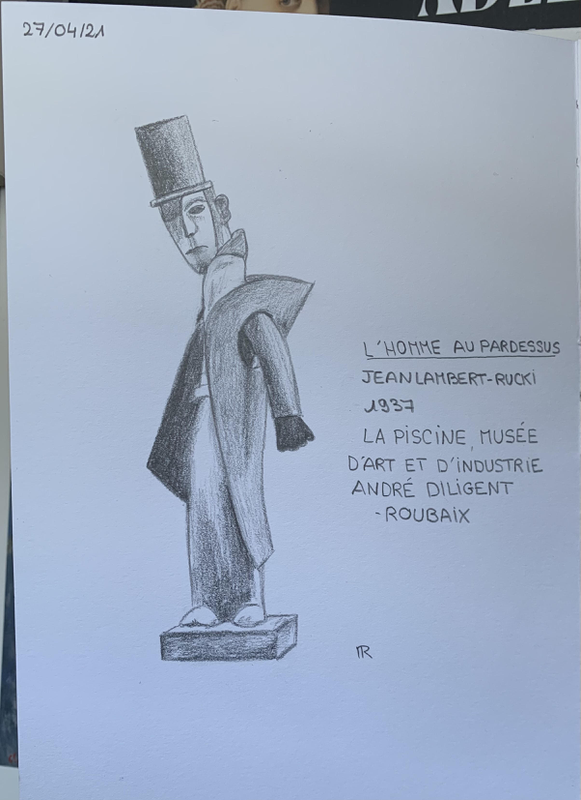 27/04/21
L'HOMME AU PARDESSUS
JEAN LAMBERT-RUCKI
1937
LA PISCINE, MUSÉE
D'ART ET D'INDUSTRIE
ANDRÉ DILIGENT
-ROUBAIX